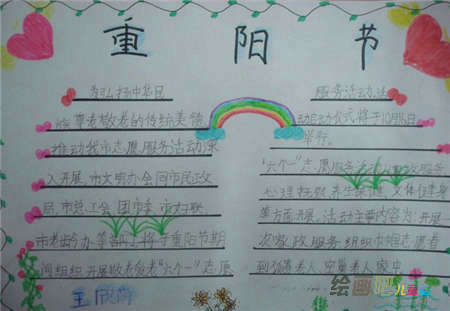 重阳节
为弘扬中华民
族尊老敬老的传统美德
推动我市志愿服务活动深
入开展,市文明办会同市民政
局、市总工会、团市委、市妇联、
市老龄办等部门将于重阳节期
间组织开展敬老爱老“六个一”志愿
服务活动,活
动启动仪式将于10月16日
举行。
“六个一”志愿服务活动
心理抚慰、养生保健、文体健身
等方面开展,活动主要内容为:开展一
次家政服务,组织巾帼志愿者
到孤寡老人、空巢老人家中
王欣
绘画吧
儿童画